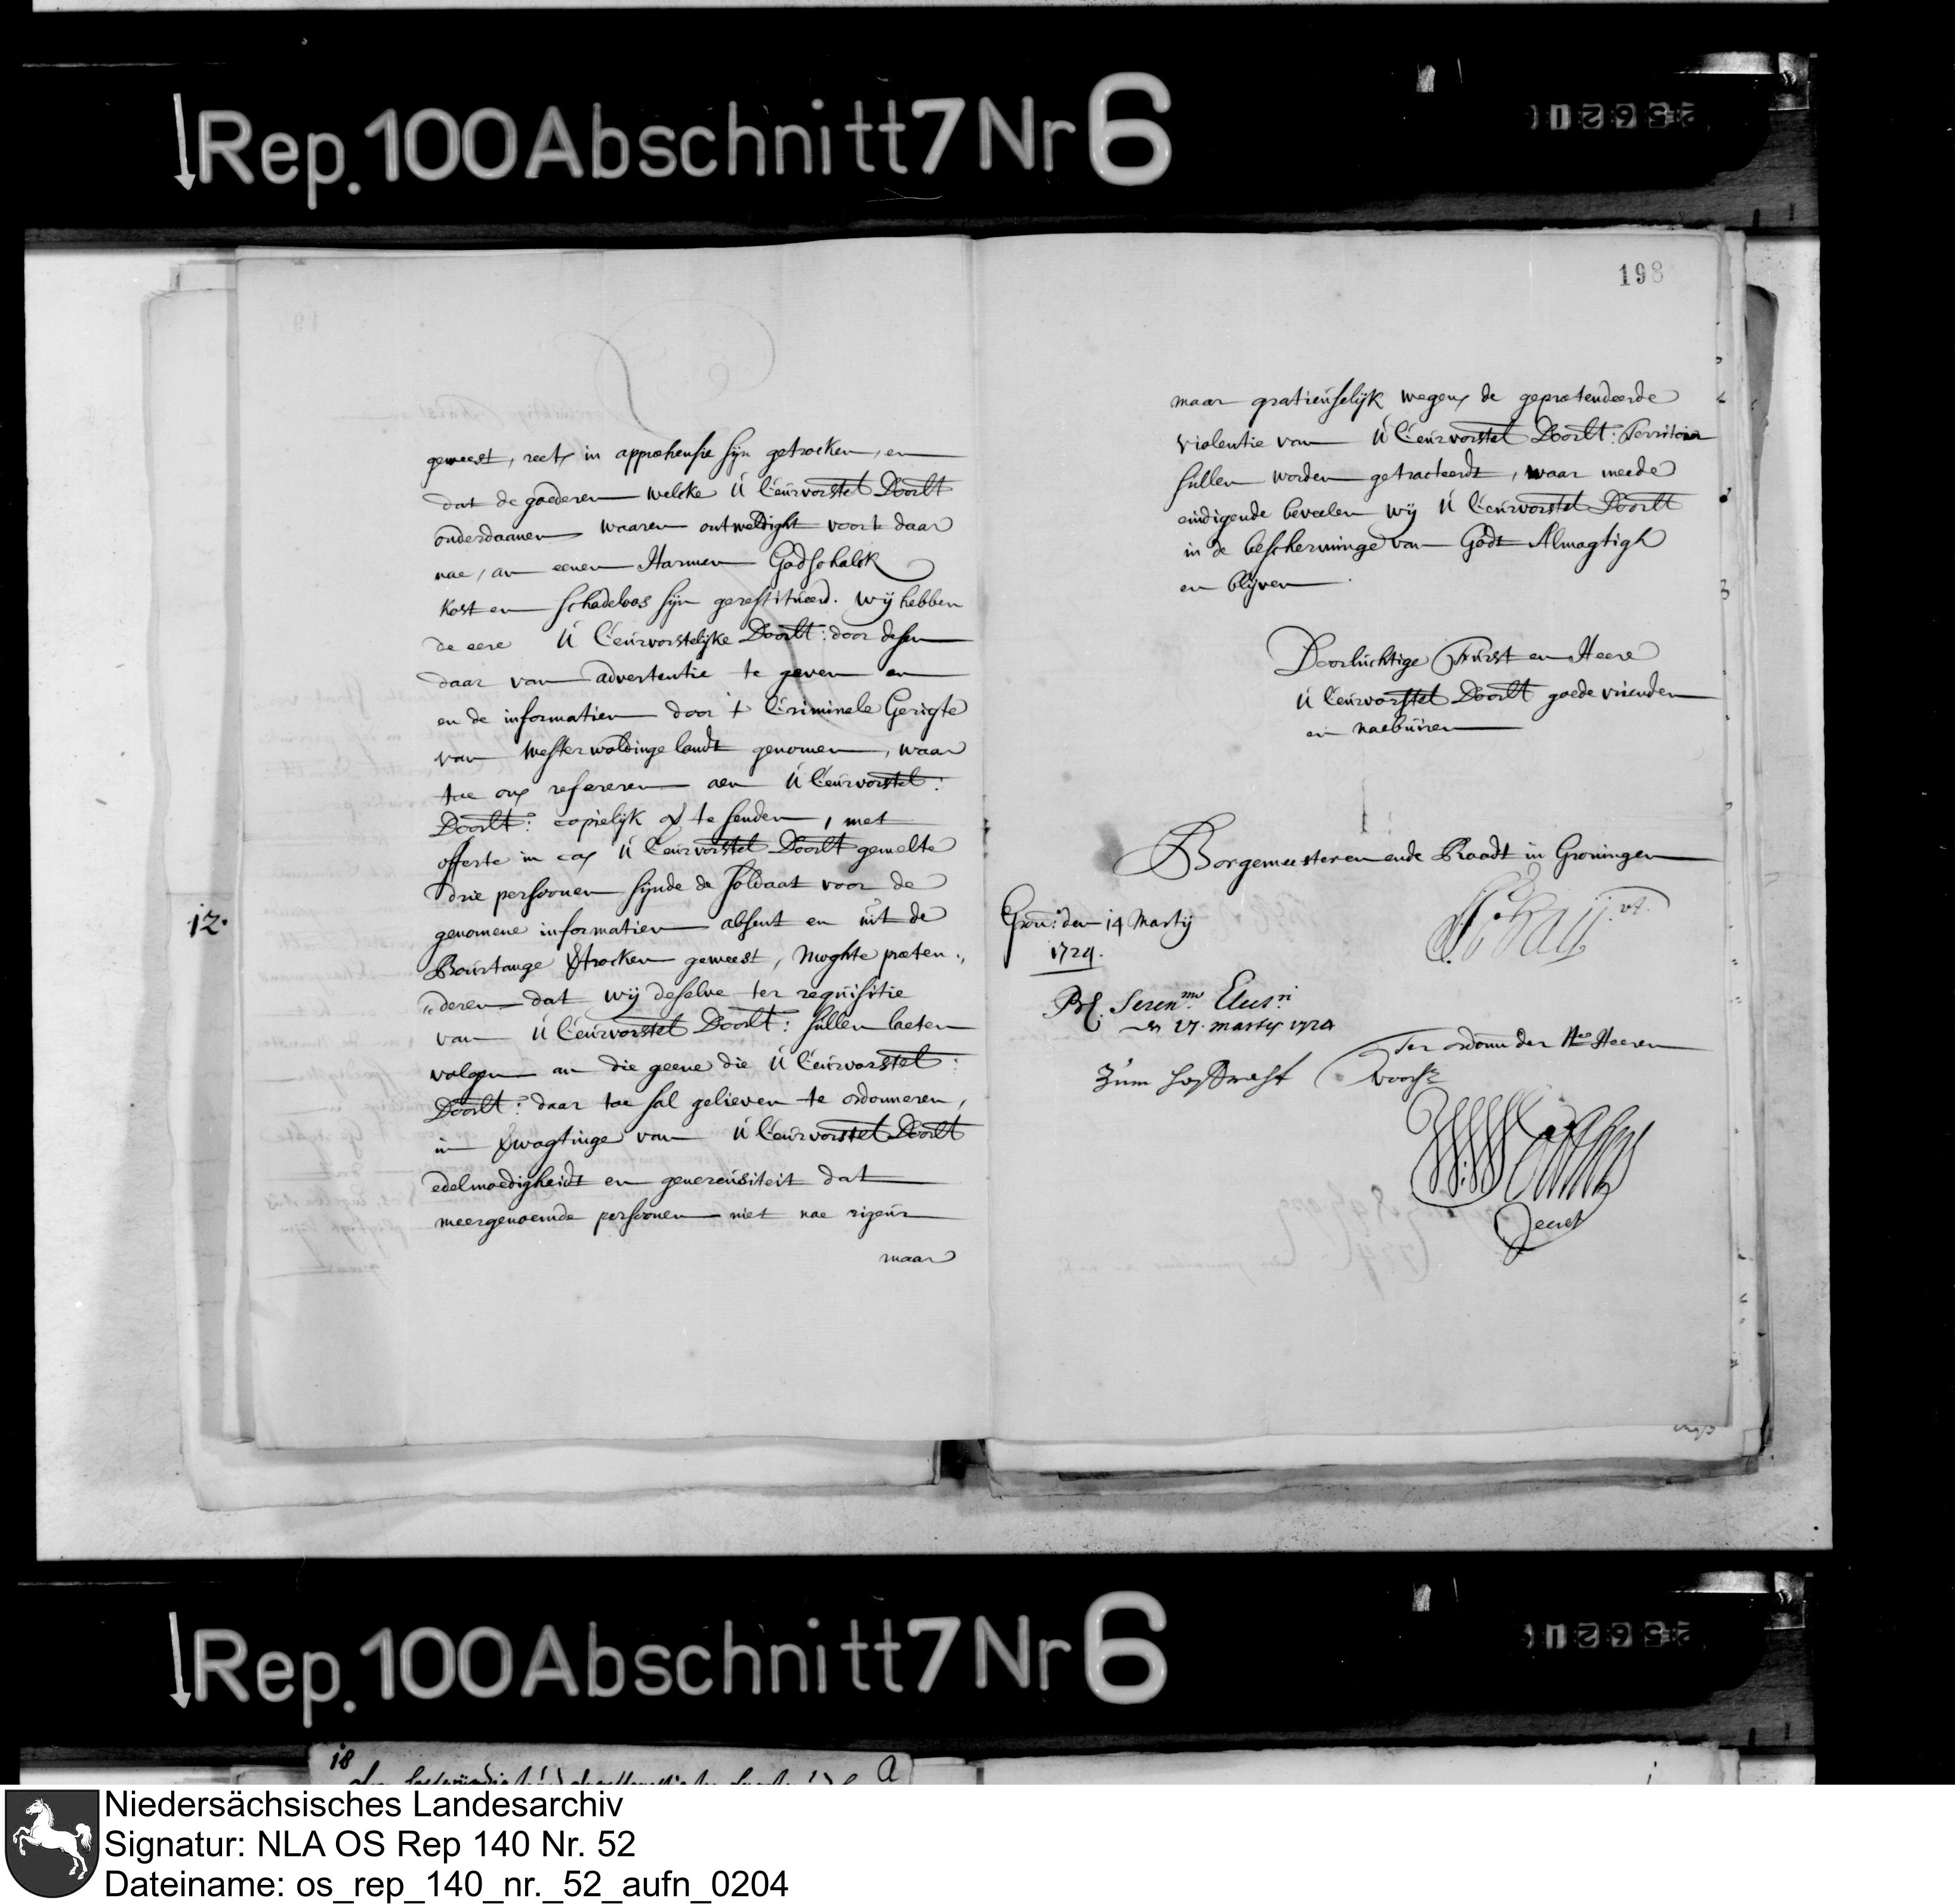 Rep. 100 Abschnitt 7 Nr 6
198
geweest, reets in apprehensie sijn getrocken, en
dat de goederen welcke U Ceurvorstel Doorlt
onderdaanen waaren ontweldight voort daar
nae, an eenen Harmen Godschalck
kost en schadeloos sijn gerestitueerd. wij hebben
de eere U Ceurvorstelijke Doorlt: door desen
daar van advertentie te geven en
en de informatien door t Criminele Gerigte
van Westerwoldinge landt genomen, waar
toe ons refereren aen U Ceurvorstel:
Doorlt: copielijk te senden, met
offerte in cas U Ceurvorstel Doorlt gemelte
drie persoonen sijnde de soldaat voor de
genomene informatien absent en uit de
Bourtange getrocken geweest, moghte preten„
„deren dat wij deselve ter requisitie
van U Ceurvorstel Doorlt: sullen laeten
volgen an die geene die U Ceurvorstel:
Doorlt: daar toe sal gelieven te ordonneren,
in verwagtinge van U Ceurvorstel Doorlt
edelmoedigheidt en genereusiteit dat
meergenoemde persoonen niet nae rigeur
maar
12.
maar gratieuselijk wegens de gepretendeerde
violentie van U Ceurvorstel Doorlt: Territoir
sullen worden getracteerdt, waar meede
eindigende beveelen wij U Ceurvorstel Doorlt
in de bescherminge van Godt Almagtigh
en blijven
Doorluchtige Furst en Heere
U Ceurvorstel Doorlt goede vrienden
en naebuiren
Borgemeesteren ende Raadt in Groningen
Gron: den 14 Martij
1724.
Seren.mo Elect.ri
27. martij 1724
Ter ordonn der Heeren
voors.
Secret
18
a
Rep. 100 Abschnitt 7 Nr 6
Niedersächsisches Landesarchiv
Signatur: NLA OS Rep 140 Nr. 52
Dateiname: os_rep_140_nr._52_aufn_0204